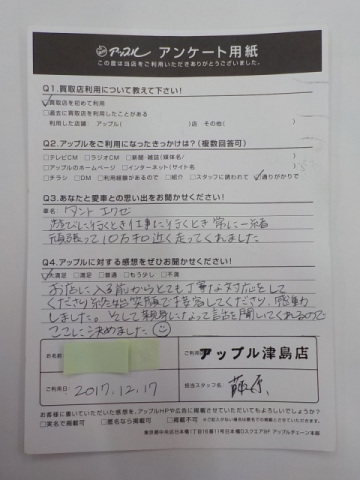 アップル アンケート用紙
この度は当店をご利用いただきありがとうございました。
Q1.買取店利用について教えて下さい!
☑買取店を初めて利用
□過去に買取店を利用したことがある
利用した店舗: アップル( )店 その他( )
Q2.アップルをご利用になったきっかけは?(複数回答可)
□テレビCM □ラジオCM □新聞・雑誌(媒体名/ )
□アップルのホームページ □インターネット(サイト名 )
□チラシ □DM □利用経験があるので □紹介 □スタッフに誘われて ☑通りがかりで
Q3.あなたと愛車との思い出をお聞かせください!
車名: タント エグゼ
遊びに行くとき仕事に行くとき常に一緒
頑張って10万キロ近く走ってくれました
Q4.アップルに対する感想をぜひお聞かせください!
☑大満足 □満足 □普通 □もう少し □不満
お店に入る前からとても丁寧な対応をして
くださり 笑顔で接客してくださり、感動
しました。そして親身になって話を聞いてくれるので
ここに決めました
お名前
ご利用店 アップル津島店
ご利用日: 2017.12.17
担当スタッフ名: 藤原
お客様に書いていただいた感想を、アップルHPや広告に掲載させていただいてもよろしいでしょうか?
□実名で掲載可 □匿名なら掲載可 □掲載不可
東京都中央区日本橋1丁目16番11号日本橋Dスクエア8F アップルチェーン本部